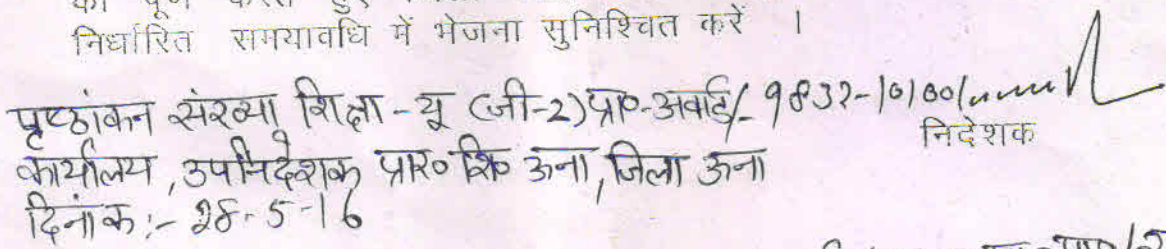 को पूर्ण करते हुए
निर्धारित समयावधि में भेजना सुनिश्चित करें ।
पृष्ठांकन संख्या शिक्षा-यू (जी-2) प्रा०-अवार्ड/-9832-10100
निदेशक
कार्यालय, उपनिदेशक प्रार० शि० ऊना, जिला ऊना
दिनांक:- 28-5-16